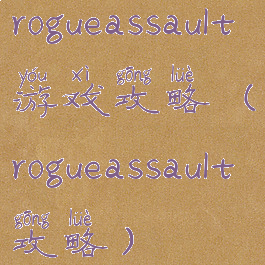 rogueassault
yóu xì gōng lüè
游戏攻略（
rogueassault
gōng lüè
攻略）